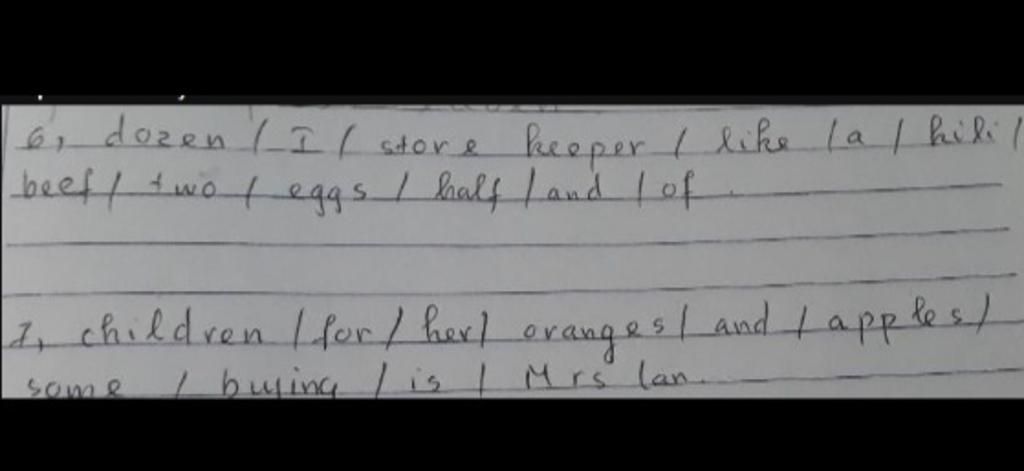 6, dozen / I / store keeper / like / a / kili /
beef / two / eggs / half / and / of .
7, children / for / her / oranges / and / apples /
some / buying / is / Mrs lan.